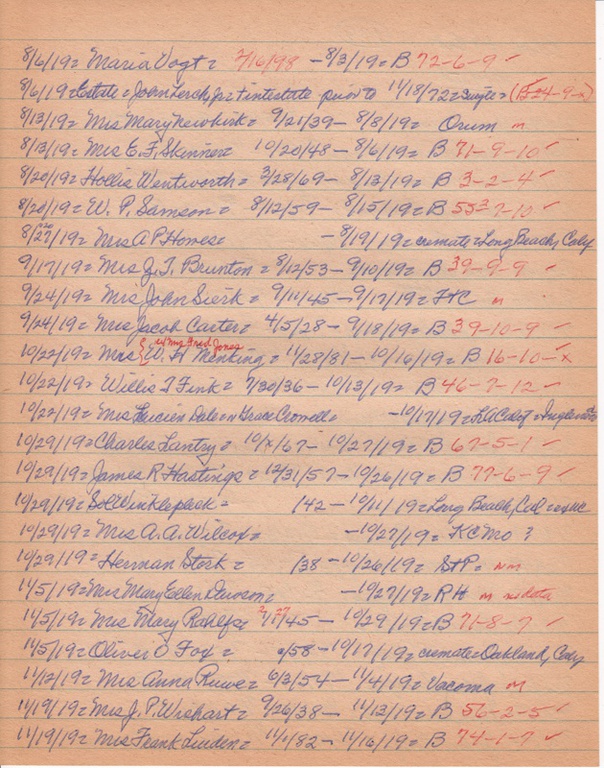 8/6/19 = Maria Vogt = 2/16/98 - 8/3/19 = B 72-6-9 ✓
8/6/19 = Estate = John Lerch, Jr = intestate prior to 11/18/72 = single = (B 24-9-x)
8/13/19 = Mrs Mary Newkirk = 9/21/39 - 8/8/19 = Orum m
8/13/19 = Mrs E. F. Skinner = 10/20/48 - 8/6/19 = B 71-9-10 ✓
8/20/19 = Hollis Wentworth = 3/28/69 - 8/13/19 = B 3-2-4 ✓
8/20/19 = W. P. Samson = 8/12/59 - 8/15/19 = B 55-7-10 ✓
8/27/19 = Mrs A P Howes = - 8/19/19 = cremate = Long Beach, Calif
9/17/19 = Mrs J. T. Brunton = 8/12/53 - 9/10/19 = B 39-9-9 ✓
9/24/19 = Mrs John Sierk = 9/11/45 - 9/17/19 = FtC m
9/24/19 = Mrs Jacob Carter = 4/5/28 - 9/18/19 = B 39-10-9 ✓
w/ Mrs Fred Jones
10/22/19 = Mrs { W. H Menking = 11/28/81 - 10/16/19 = B 16-10-x
10/22/19 = Willis T Fink = 7/30/36 - 10/13/19 = B 46-7-12 ✓
10/22/19 = Mrs Lucien Dale = n Grace Crowell = - 10/17/19 = LA Calif = Inglewood
10/29/19 = Charles Lantry = 10/x/67 - 10/27/19 = B 67-5-1 ✓
10/29/19 = James R Hastings = 12/31/57 - 10/26/19 = B 77-6-9 ✓
10/29/19 = Sol Winklepleck = /42 - 10/11/19 = Long Beach, Cal =
10/29/19 = Mrs A. A. Wilcox = - 10/27/19 = KC Mo ?
10/29/19 = Herman Stork = /38 - 10/26/19 = StP = nm
11/5/19 = Mrs Mary Ellen Denson = - 10/27/19 = RH m no data
11/5/19 = Mrs Mary Rahlfs = 2/17/45 - 10/29/19 = B 71-8-7 ✓
11/5/19 = Oliver O Fox = /58 - 10/17/19 = cremate = Oakland, Calif
11/12/19 = Mrs Anna Ruwe = 6/3/54 - 11/4/19 = Vacoma m
11/19/19 = Mrs J. P. Wishart = 9/26/38 - 11/13/19 = B 56-2-5 ✓
11/19/19 = Mrs Frank Linden = 11/1/82 - 11/16/19 = B 74-1-7 ✓